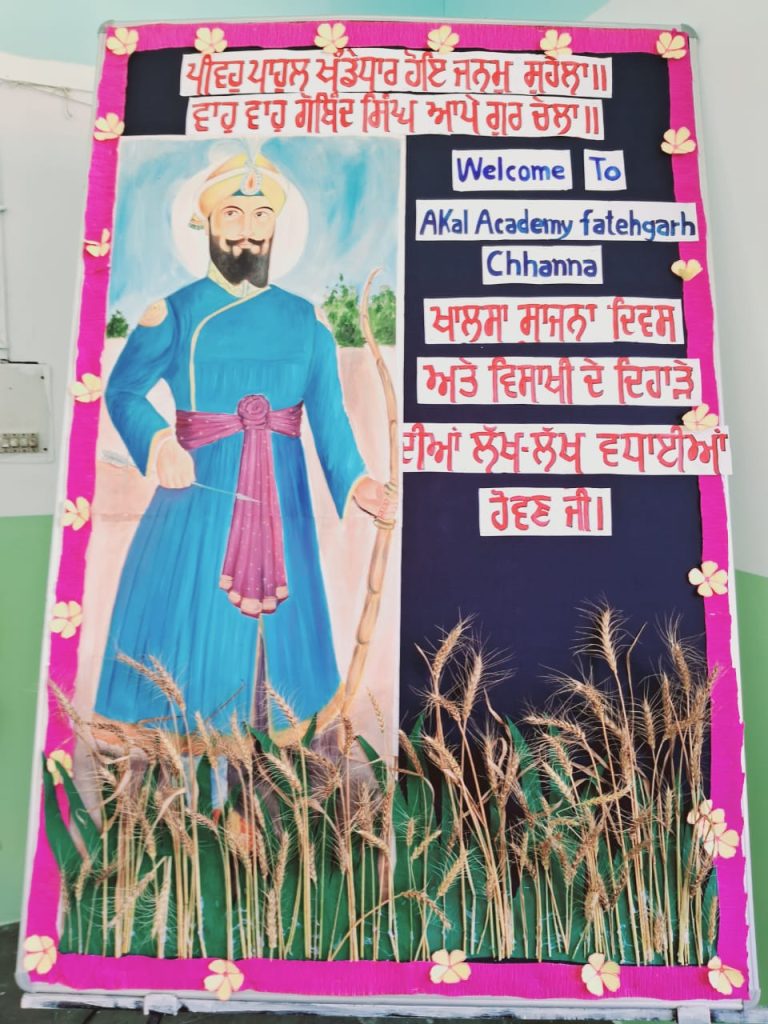 ਪੀਵਹੁ ਪਾਹੁਲ ਖੰਡੇਧਾਰ ਹੋਇ ਜਨਮੁ ਸੁਹੇਲਾ॥
ਵਾਹੁ ਵਾਹੁ ਗੋਬਿੰਦ ਸਿੰਘ ਆਪੇ ਗੁਰ ਚੇਲਾ॥
Welcome To
AKal Academy fatehgarh
Chhanna
ਖਾਲਸਾ ਸਾਜਨਾ ਦਿਵਸ
ਅਤੇ ਵਿਸਾਖੀ ਦੇ ਦਿਹਾੜੇ
ਦੀਆਂ ਲੱਖ-ਲੱਖ ਵਧਾਈਆਂ
ਹੋਵਣ ਜੀ।